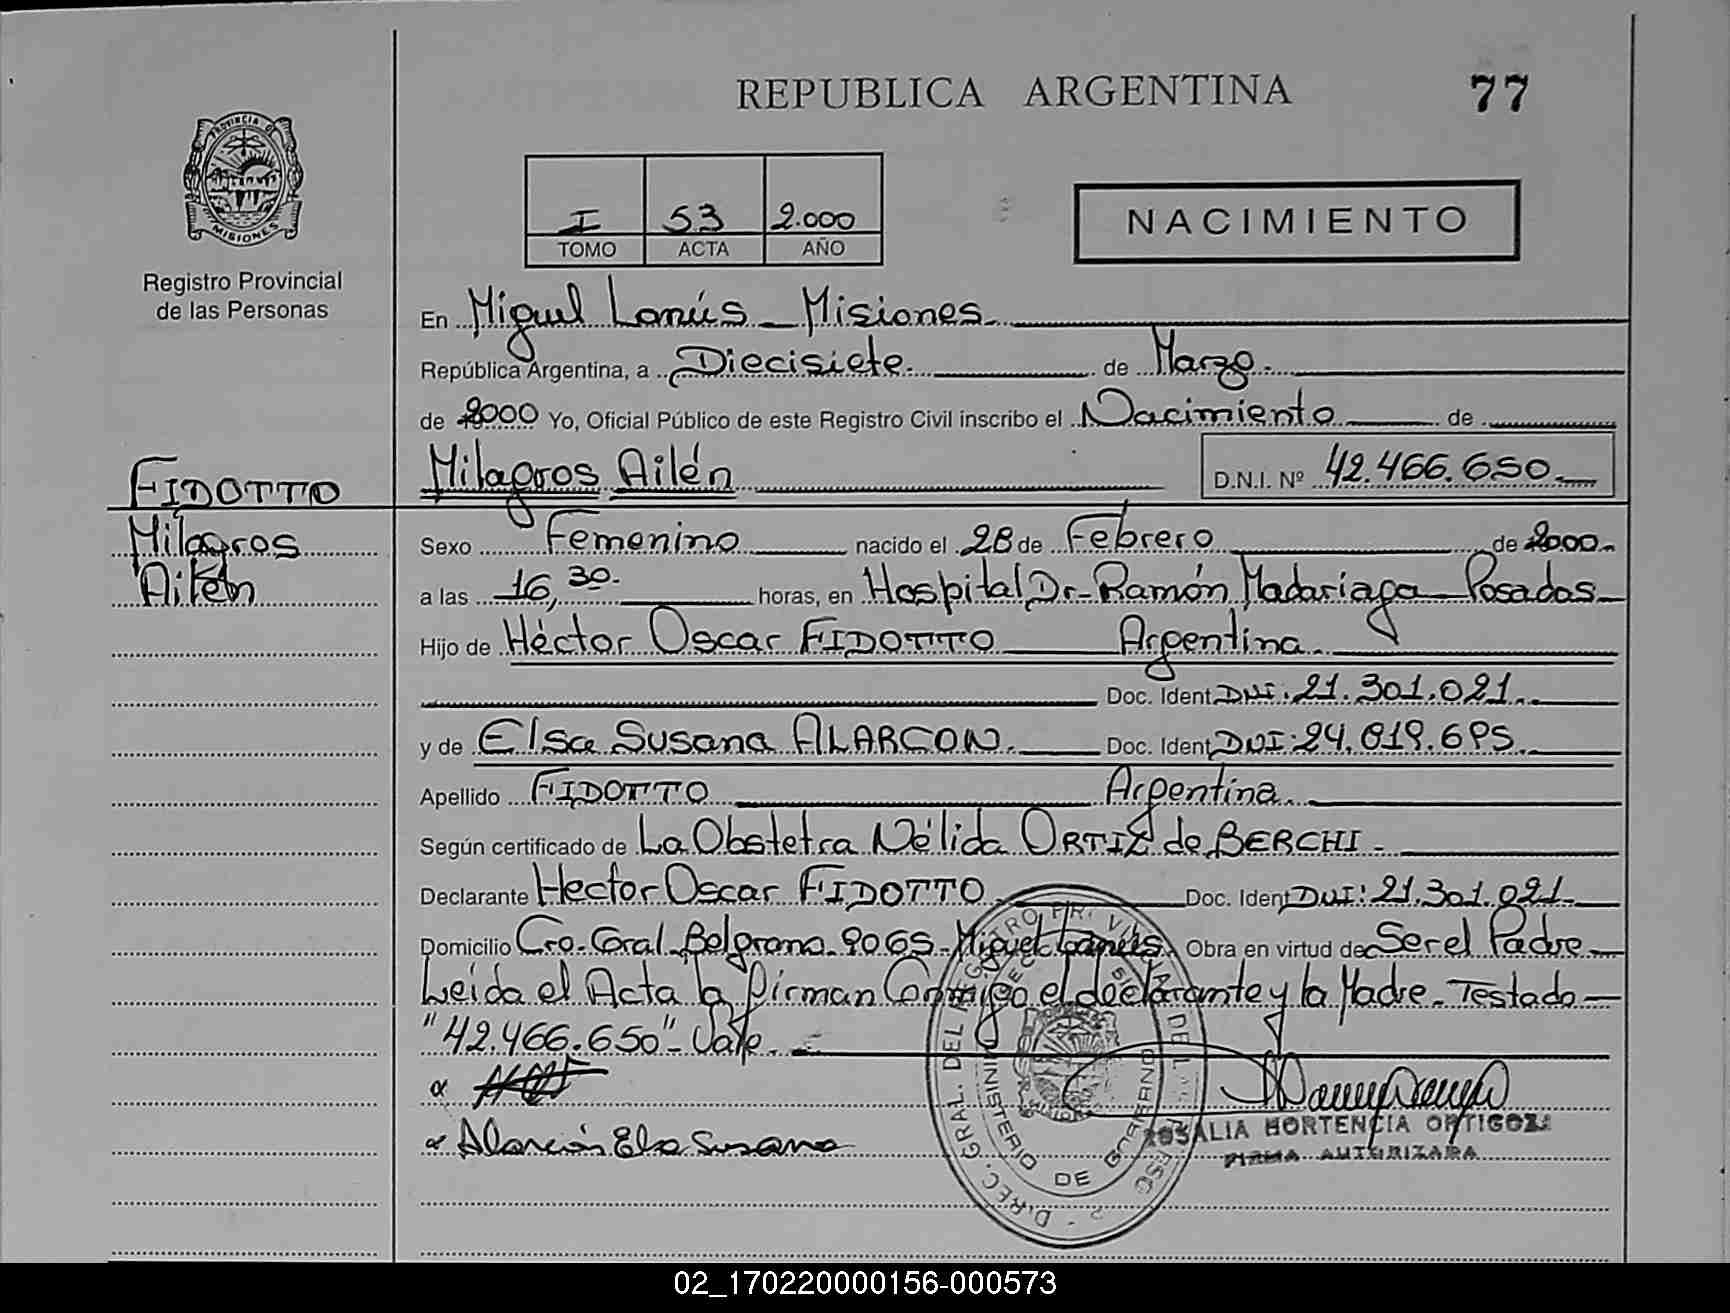 REPUBLICA ARGENTINA
77
PROVINCIA DE
MISIONES
Registro Provincial
de las Personas
I 53 2.000
TOMO ACTA AÑO
NACIMIENTO
En Miguel Lanús - Misiones
República Argentina, a Diecisiete de Marzo
de 2000 Yo, Oficial Público de este Registro Civil inscribo el Nacimiento de
Milagros Ailén D.N.I. Nº 42.466.650
FIDOTTO
Milagros
Ailén
Sexo Femenino nacido el 28 de Febrero de 2000
a las 16,30 horas, en Hospital Dr. Ramón Madariaga - Posadas
Hijo de Héctor Oscar FIDOTTO Argentina
Doc. Ident DNI: 21.301.021
y de Elsa Susana ALARCON. Doc. Ident DNI: 24.819.695
Apellido FIDOTTO Argentina
Según certificado de La Obstetra Nélida ORTIZ de BERCHI
Declarante Hector Oscar FIDOTTO Doc. Ident DNI: 21.301.021
Domicilio Cro. Gral. Belgrano 9065 - Miguel Lanús Obra en virtud de Ser el Padre
Leída el Acta la firman Conmigo el declarante y la Madre - Testado
"42.466.650" - Vale
Alarcón Elsa Susana
ROSALIA HORTENCIA ORTIGOZA
FIRMA AUTORIZADA
DIREC. GRAL. DEL REGISTRO
MINISTERIO DE GOBIERNO
02_170220000156-000573